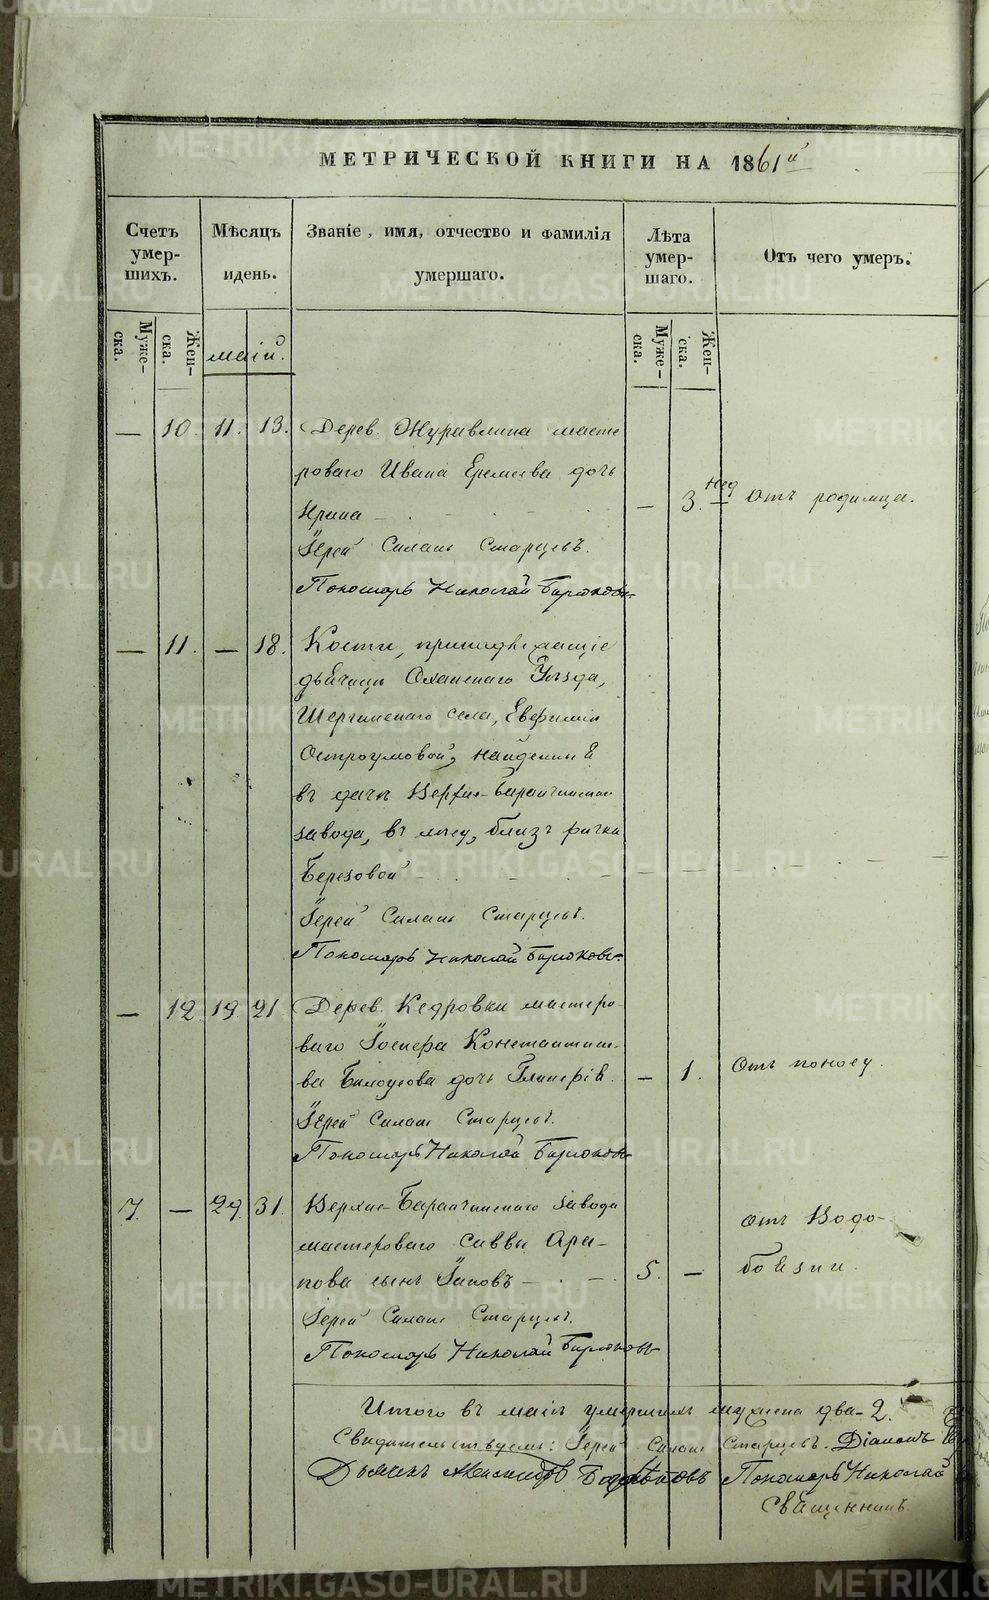 МЕТРИЧЕСКОЙ КНИГИ НА 1861й
Счетъ умер-шихъ.
Мѣсяцъ идень.
Званіе, имя, отчество и фамилія умершаго.
Лѣта умер-шаго.
Отъ чего умеръ.
Муже-ска.
Жен-ска.
маій.
Муже-ска.
Жен-ска.
— 10. 11. 13. Дерев. Журавлика масте
роваго Ивана Еремеева дочь
Ирина — 3. нед — Отъ родимца.
Іерей Силаъ Старцевъ.
Пономарь Николай Бирюковъ
— 11. — 18. Кости, принадлежащіе
дѣвицѣ Оханскаго Уѣзда,
Шергинскаго села, Евфиміи
Остроумовой, найденныѣ
въ дачѣ Верхне-Баранчинскаго
завода, въ лѣсу, близъ рѣчки
Березовой —
Іерей Силаъ Старцевъ.
Пономарь Николай Бирюковъ.
— 12. 19. 21. Дерев. Кедровки мастеро-
ваго Іосифа Константино-
ва Бѣлоусова дочь Гликерія. — 1. Отъ поносу.
Іерей Силаъ Старцевъ.
Пономарь Николай Бирюковъ
7. — 29. 31. Верхне-Баранчинскаго завода
отъ Водо-
мастероваго Саввы Ара-
пова сынъ Іаковъ — 5. — боязни.
Іерей Силаъ Старцевъ.
Пономарь Николай Бирюковъ
Итого въ маіѣ умершихъ мужеска два-2.
Свидетельствуемъ: Іерей Силаъ Старцевъ. Діаконъ
Дьячекъ Пономарь Николай
Священникъ
METRIKI.GASO-URAL.RU